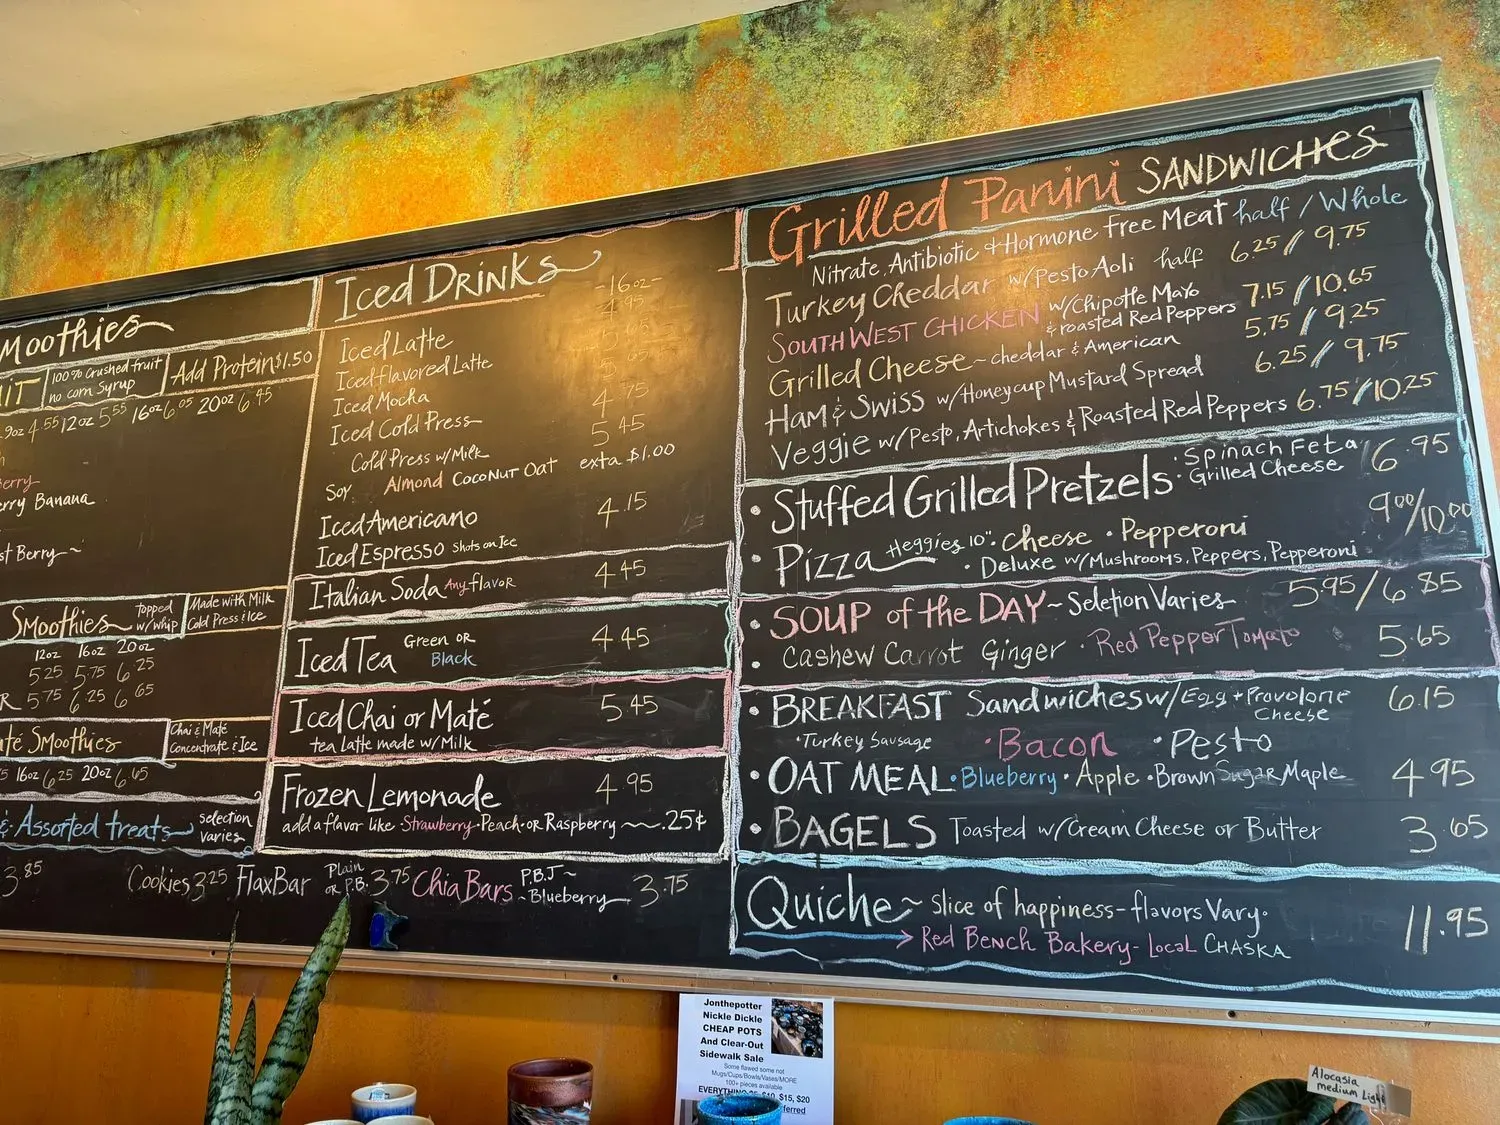 moothies
100% Crushed fruit
no corn Syrup
Add Protein $1.50
9oz 4.55 12oz 5.55 16oz 6.05 20oz 6.45
Berry
erry Banana
st Berry~
Smoothies
topped
w/whip
Made with Milk
Cold Press & Ice
12oz 16oz 20oz
5.25 5.75 6.25
R 5.75 6.25 6.65
té Smoothies
Chai & Maté
Concentrate & Ice
5 16oz 6.25 20oz 6.65
& Assorted treats
selection
varies
3.85
Cookies 3.25 Flax Bar Plain or P.B. 3.75 Chia Bars P.B.J~ ~Blueberry 3.75
Iced Drinks
-16oz-
Iced Latte 4.95
Iced flavored Latte 5.65
Iced Mocha 5.65
Iced Cold Press 4.75
Cold Press w/Milk 5.45
Soy Almond Coconut Oat exta $1.00
Iced Americano 4.15
Iced Espresso Shots on Ice
Italian Soda Any flavor 4.45
Iced Tea Green or Black 4.45
Iced Chai or Maté 5.45
tea Latte made w/Milk
Frozen Lemonade 4.95
add a flavor like Strawberry·Peach·or Raspberry ~~.25¢
Grilled Panini SANDWICHES
Nitrate, Antibiotic & Hormone free Meat half / Whole
Turkey Cheddar w/Pesto Aoli half 6.25 / 9.75
SOUTHWEST CHICKEN w/Chipotle Mayo & roasted Red Peppers 7.15 / 10.65
Grilled Cheese~cheddar & American 5.75 / 9.25
Ham & Swiss w/Honeycup Mustard Spread 6.25 / 9.75
Veggie w/Pesto, Artichokes & Roasted Red Peppers 6.75 / 10.25
· Stuffed Grilled Pretzels · Spinach Feta · Grilled Cheese 6.95
· Pizza Heggies 10" · Cheese · Pepperoni 9.00/10.00
· Deluxe w/Mushrooms, Peppers, Pepperoni
· SOUP of the DAY~Seletion Varies 5.95/6.85
· Cashew Carrot Ginger · Red Pepper Tomato 5.65
· BREAKFAST Sandwiches w/Egg + Provolone Cheese 6.15
· Turkey Sausage · Bacon · Pesto
· OAT MEAL · Blueberry · Apple · Brown Sugar Maple 4.95
· BAGELS Toasted w/Cream Cheese or Butter 3.65
Quiche~ Slice of happiness-flavors Vary· 11.95
Red Bench Bakery-Local CHASKA
Jonthepotter
Nickle Dickle
CHEAP POTS
And Clear-Out
Sidewalk Sale
Some flawed some not
Mugs/Cups/Bowls/Vases/MORE
100+ pieces available
Alocasia
medium Light